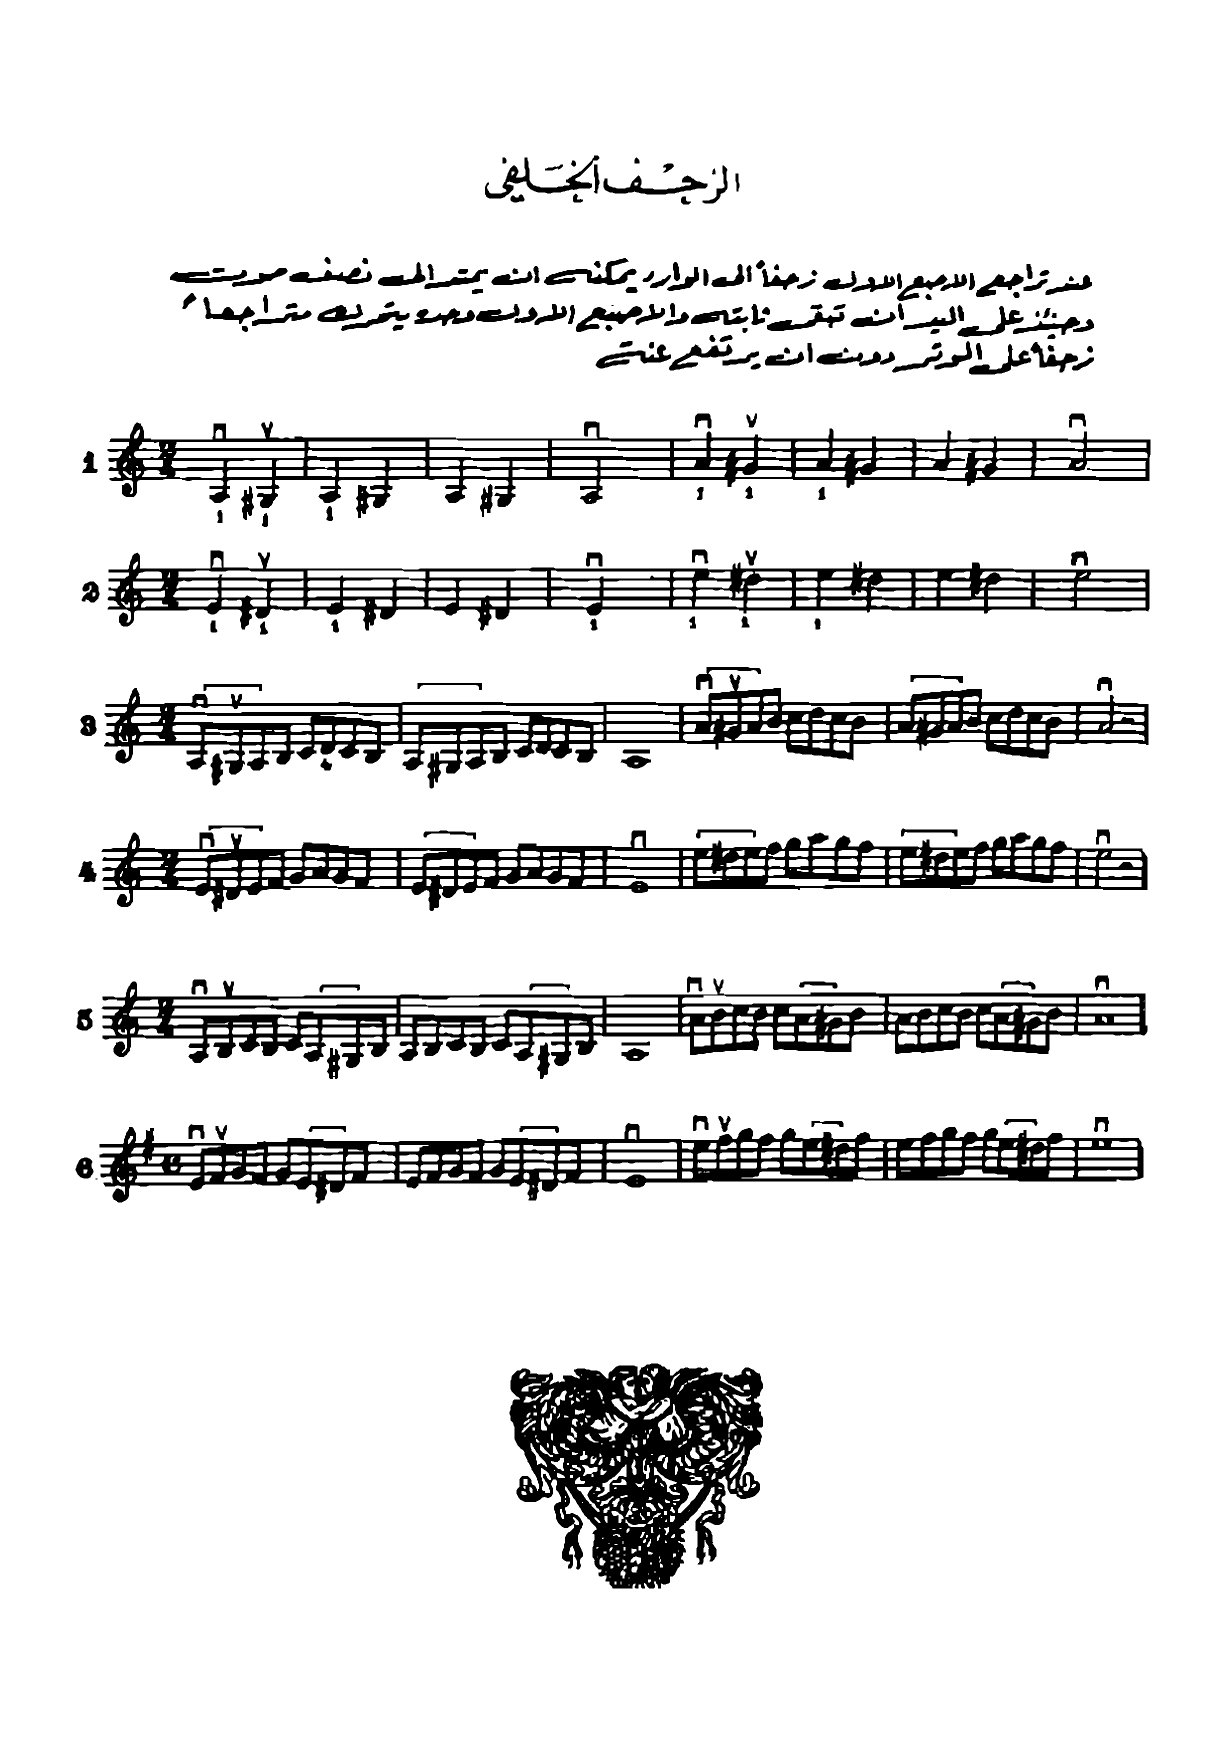 الزحف الخلفي
عند تراجع الاصبع الاول زحفاً الى الوراء يمكنه ان يمتد الى نصف صوت
وحينئذ على اليد أن تبقى ثابتة والاصبع الاول وحده يتحرك متراجعاً
زحفاً على الوتر دون ان يرتفع عنه
1
1 1 1 1 1 1
2
1 1 1 1 1 1 1
3
4
4
5
6